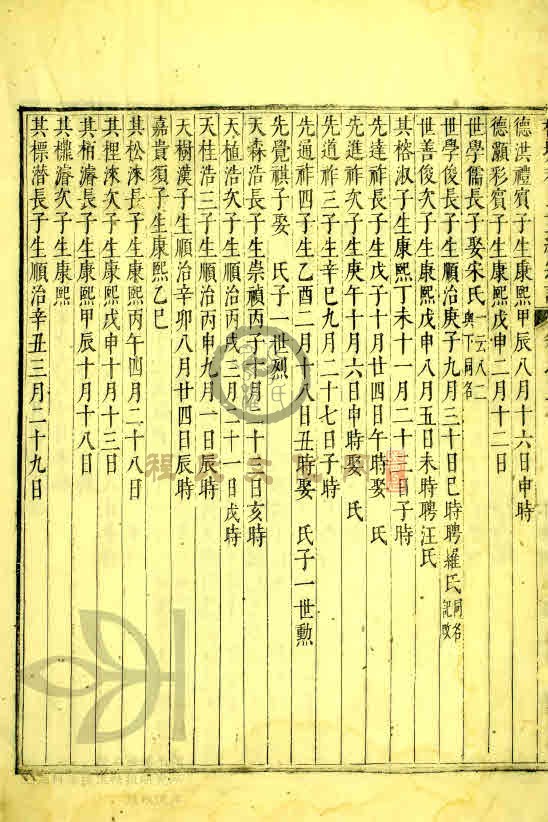 德洪禮賓子生康熙甲辰八月十六日申時
德灝彩賓子生康熙戊申二月十二日
世學儒長子娶宋氏一云八二與下同名
世學俊長子生順治庚子九月三十日巳時聘羅氏同名記攷
世善俊次子生康熙戊申八月五日未時聘汪氏
其榕淑子生康熙丁未十一月二十二日子時
先達祚長子生戊子十月廿四日午時娶 氏
先進祚次子生庚午十月六日申時娶 氏
先道祚三子生辛巳九月二十七日子時
先通祚四子生乙酉二月十八日丑時娶 氏子一世勲
先覺祺子娶 氏子一世烈
天森浩長子生崇禎丙子七月二十三日亥時
天植浩次子生順治丙戌三月二十一日戌時
天桂浩三子生順治丙申九月一日辰時
天樹漢子生順治辛卯八月廿四日辰時
嘉貴須子生康熙乙巳
其松淶長子生康熙丙午四月二十八日
其梩淶次子生康熙戊申十月十三日
其栴濬長子生康熙甲辰十月十八日
其欉濬次子生康熙
其標潛長子生順治辛丑三月二十九日